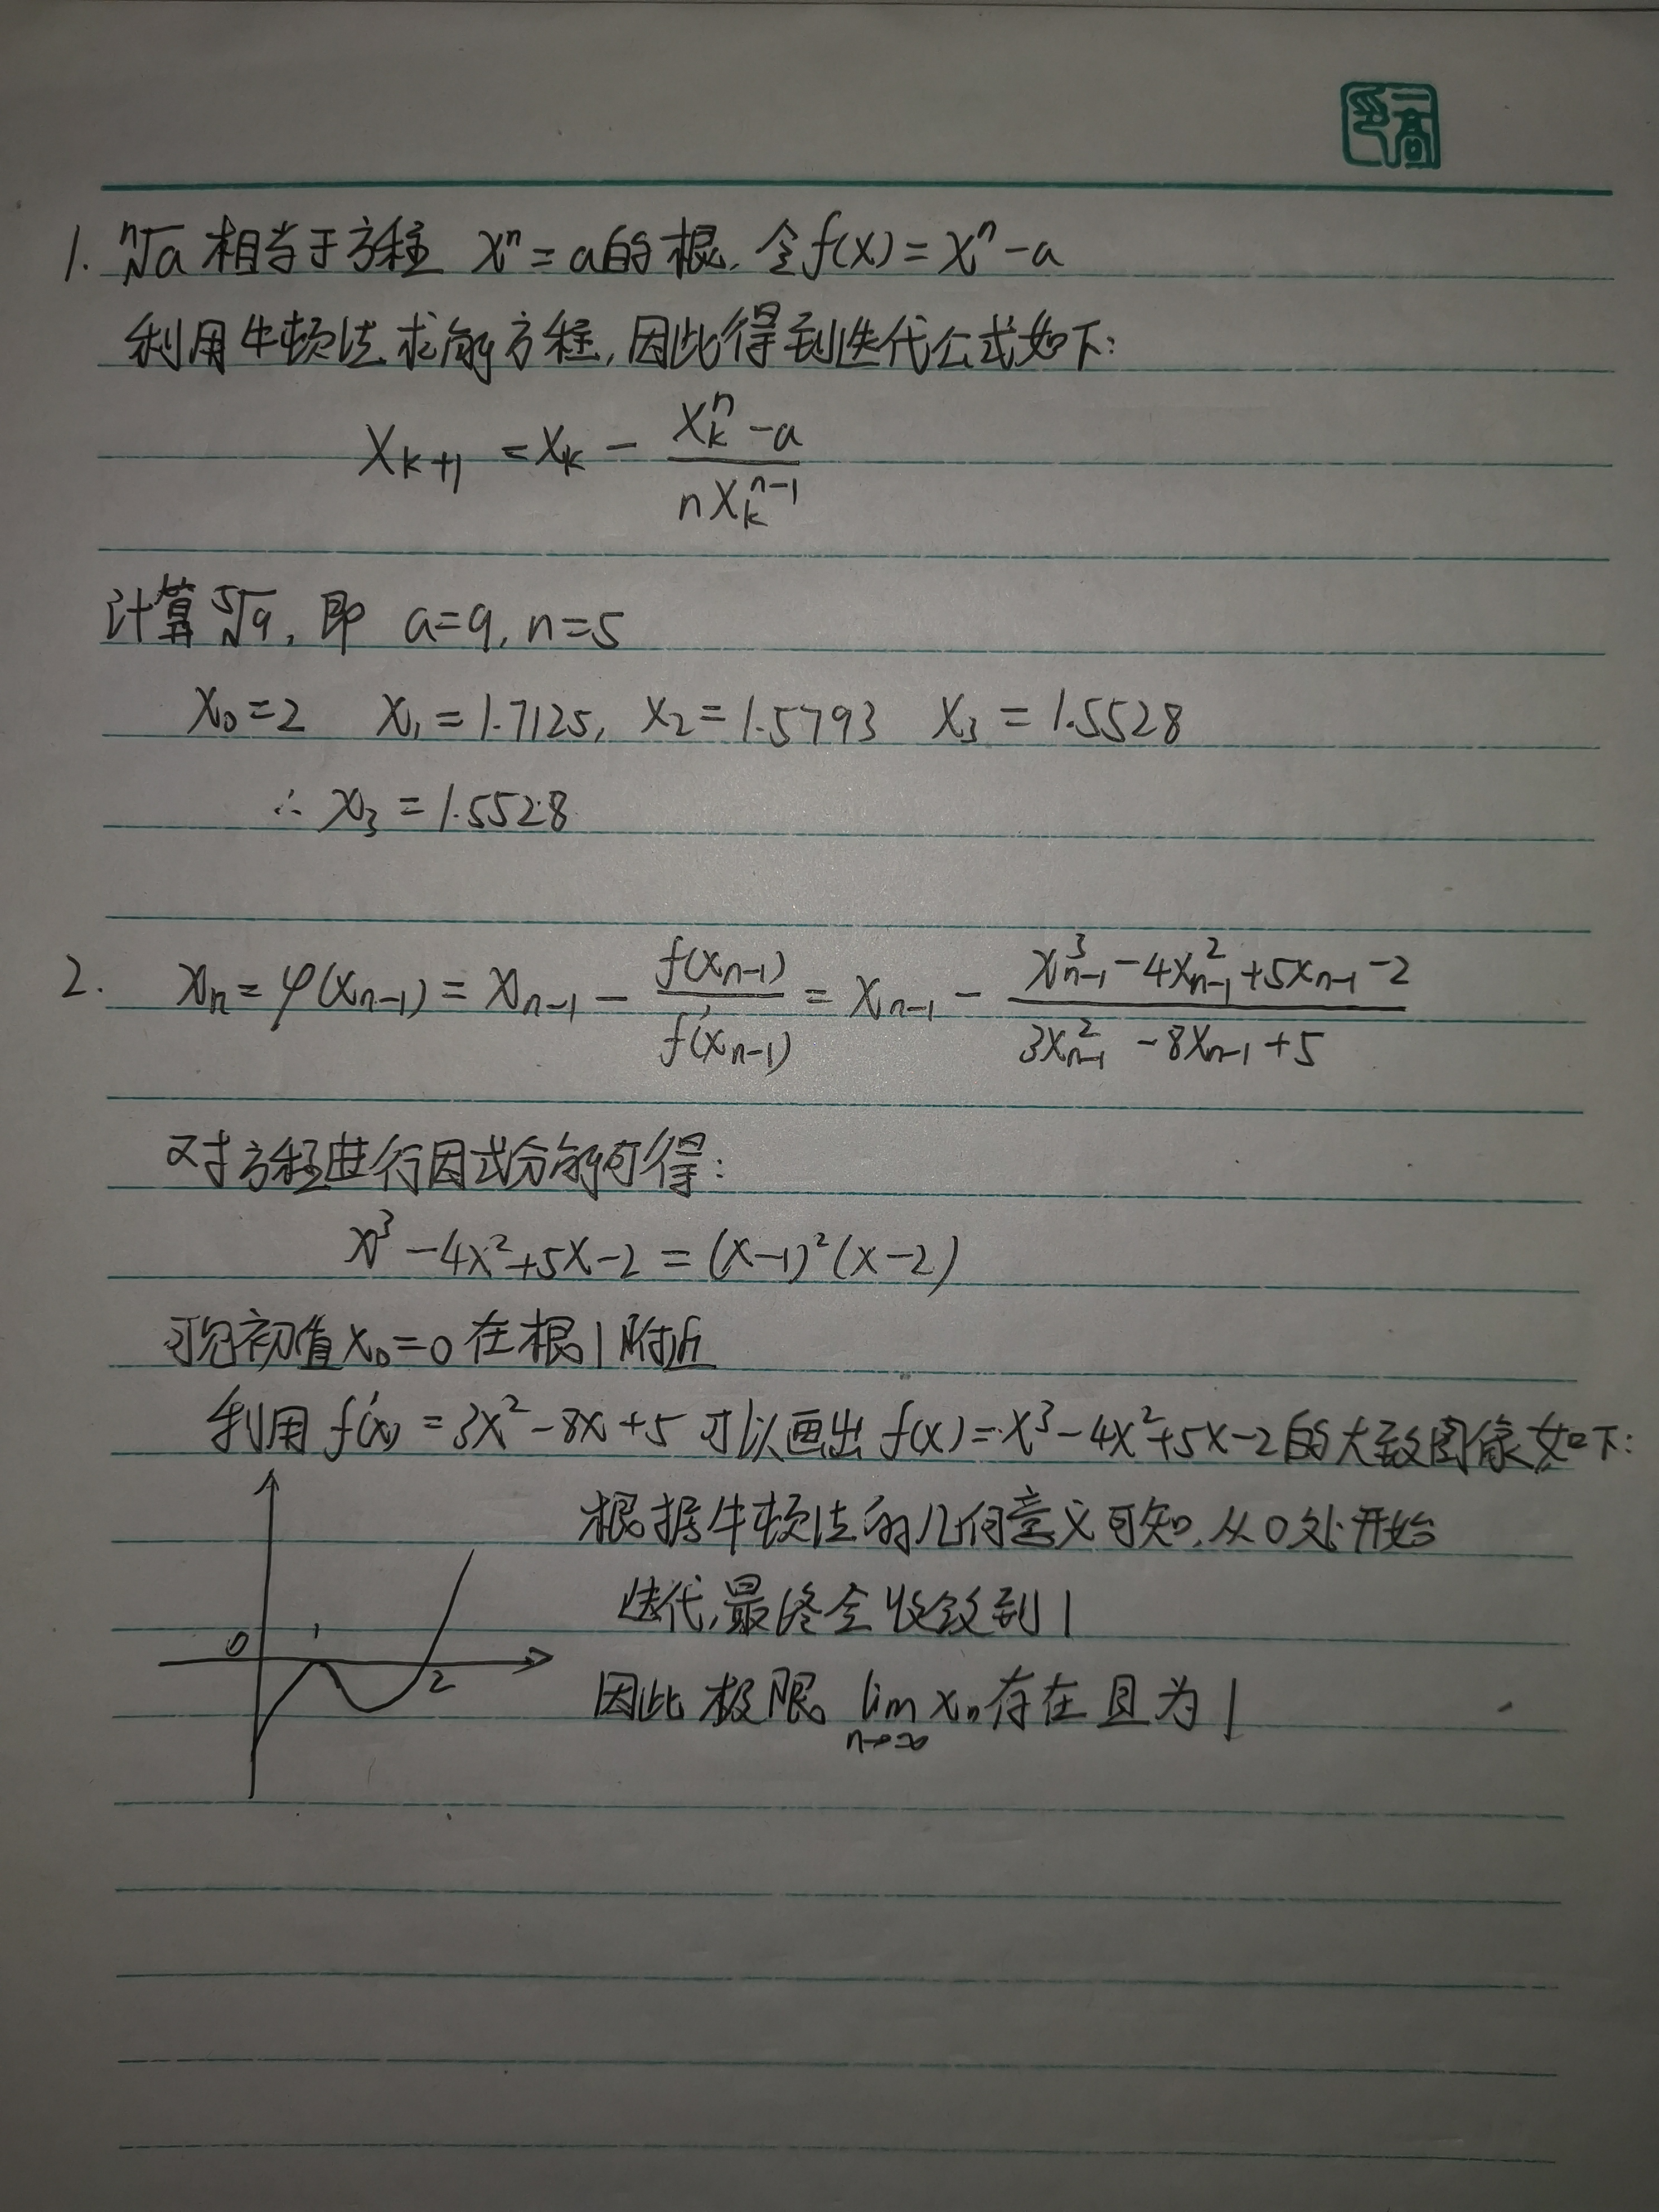 一高印
1. ⁿ√a 相当于方程 xⁿ = a的根, 令f(x) = xⁿ - a
利用牛顿法求解方程, 因此得到迭代公式如下:
x_{k+1} = x_k - (x_kⁿ - a)/(n x_k^{n-1})
计算 ⁵√9, 即 a=9, n=5
x₀=2 x₁=1.7125, x₂=1.5793 x₃=1.5528
∴ x₃ = 1.5528
2. x_n = φ(x_{n-1}) = x_{n-1} - f(x_{n-1})/f'(x_{n-1}) = x_{n-1} - (x_{n-1}³ - 4x_{n-1}² + 5x_{n-1} - 2)/(3x_{n-1}² - 8x_{n-1} + 5)
对方程进行因式分解可得:
x³ - 4x² + 5x - 2 = (x-1)²(x-2)
可见初值x₀=0在根1附近
利用 f'(x) = 3x² - 8x + 5 可以画出 f(x) = x³ - 4x² + 5x - 2的大致图像如下:
根据牛顿法的几何意义可知, 从0处开始
迭代, 最终会收敛到1
0 1 2
因此极限 lim_{n→∞} x_n 存在且为1